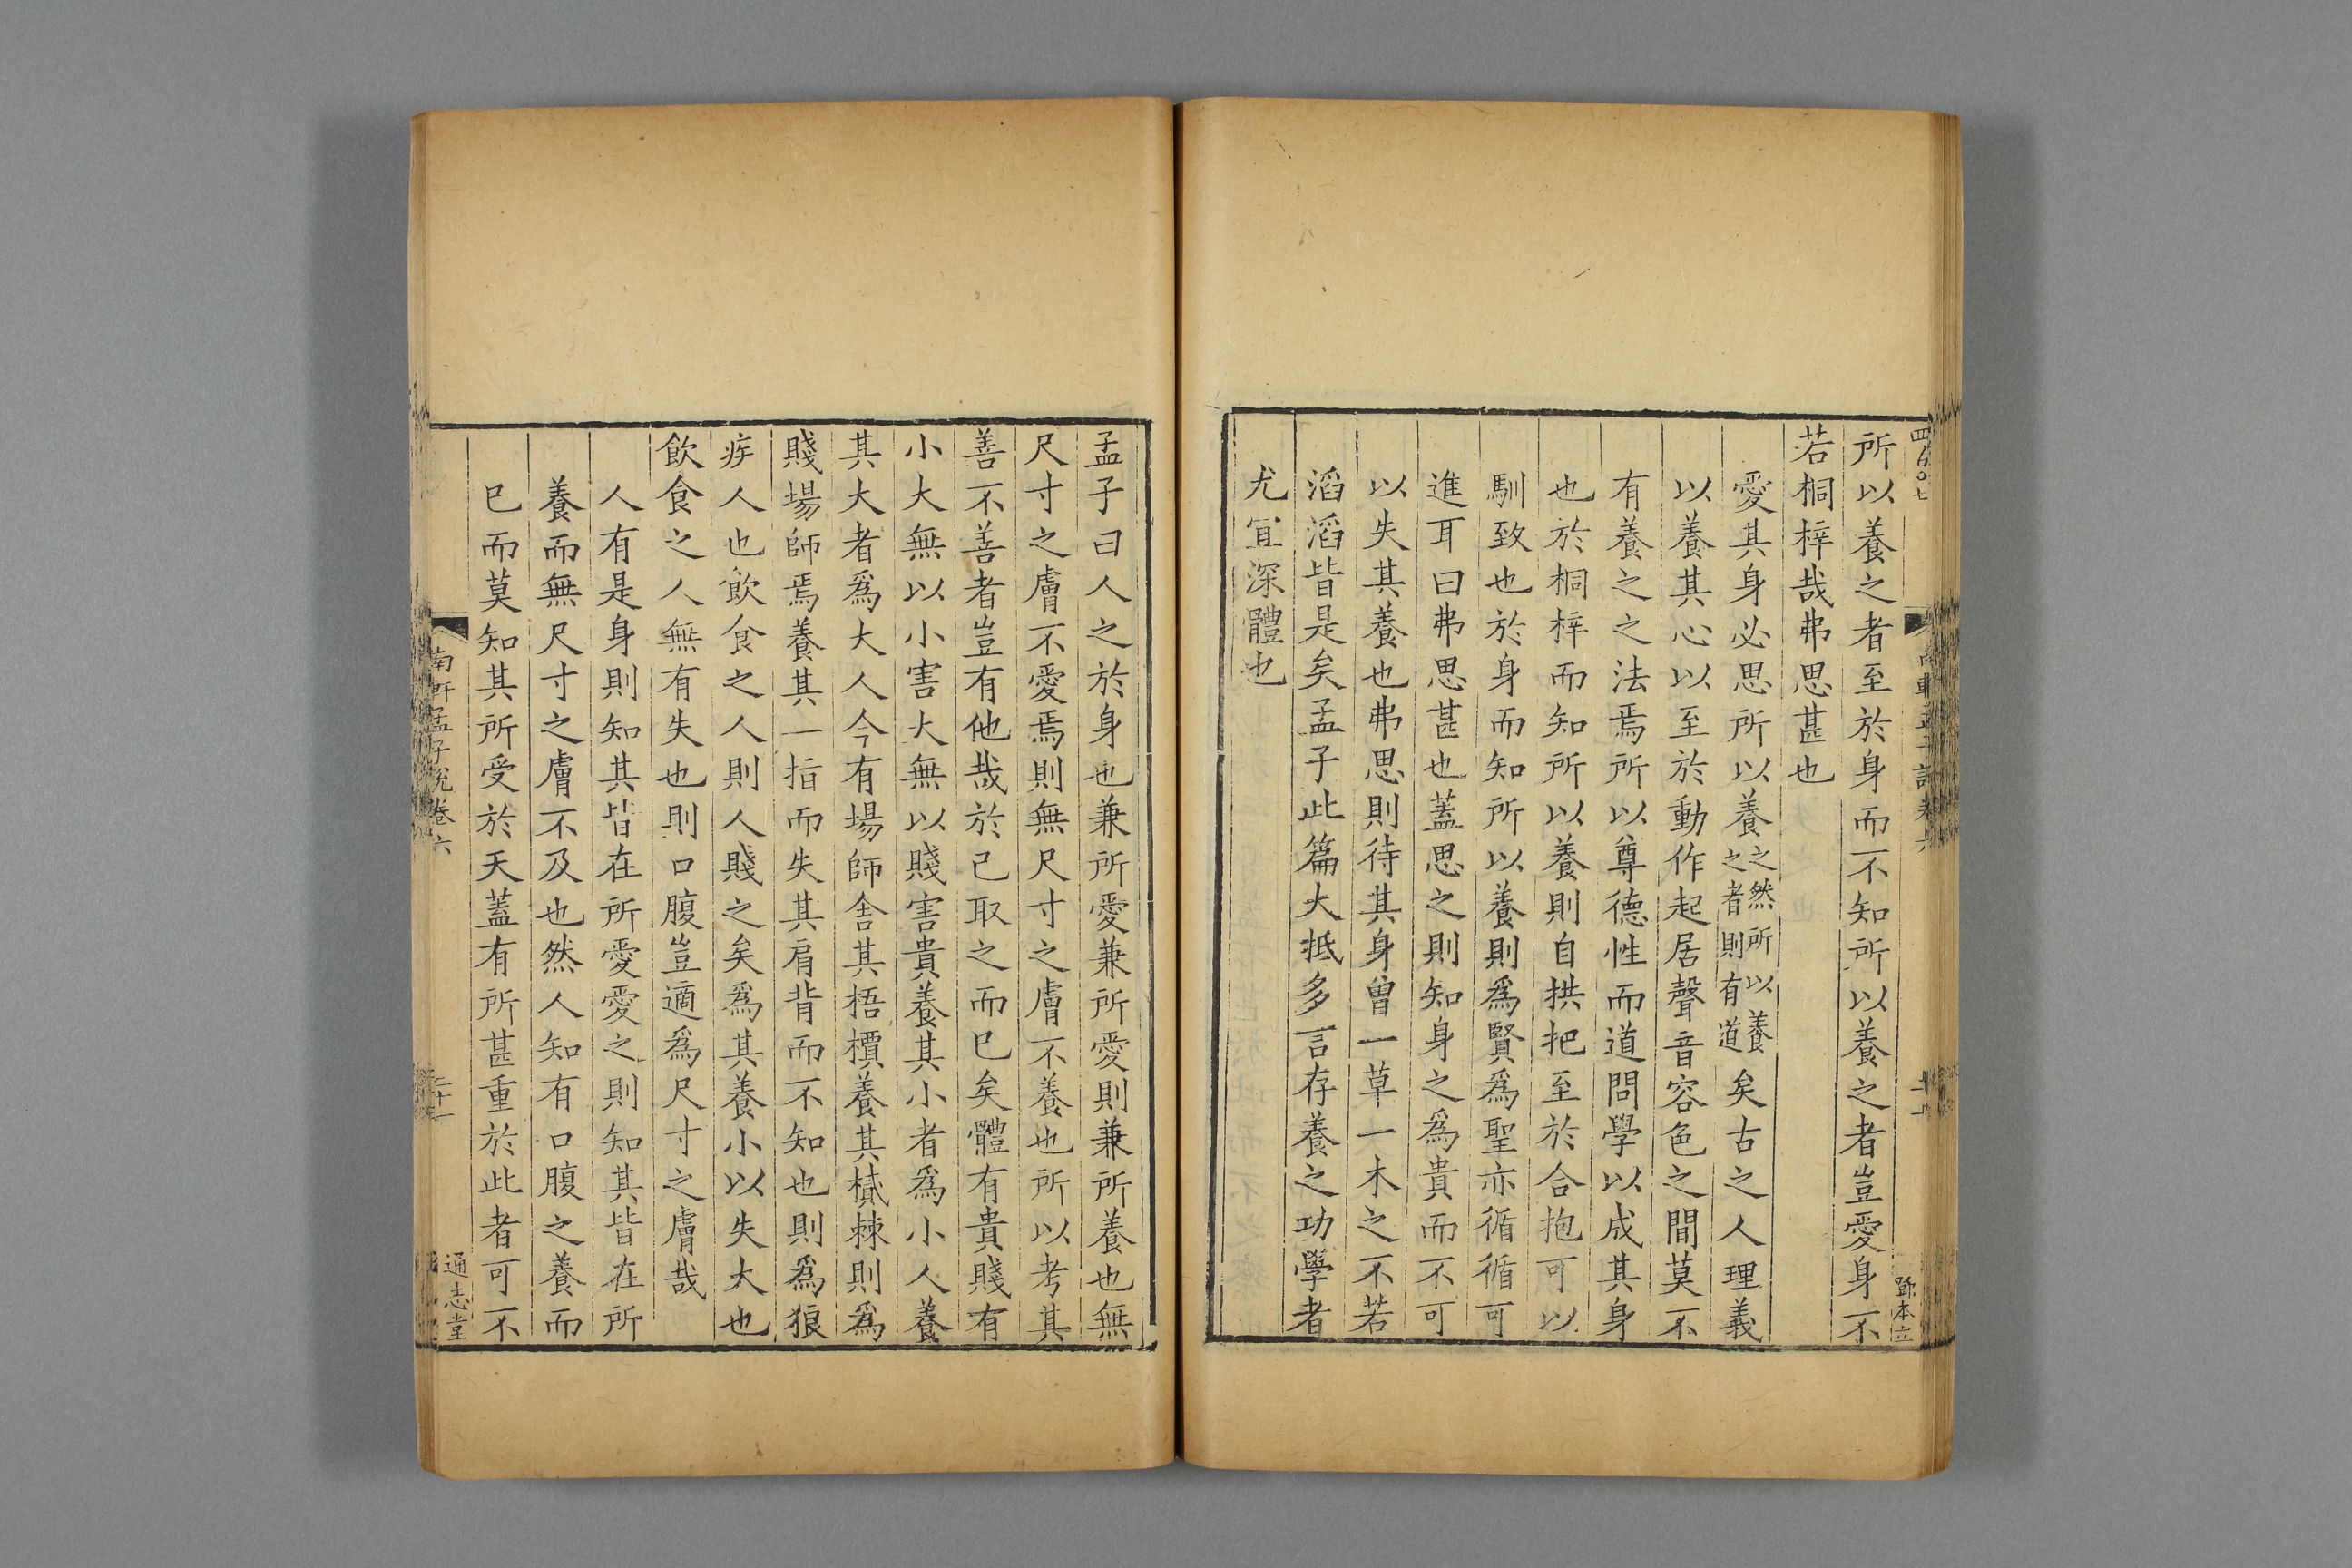 所以養之者至於身而不知所以養之者豈愛身不
若桐梓哉弗思甚也
愛其身必思所以養之然所以養之者則有道矣古之人理義
以養其心以至於動作起居聲音容色之間莫不
有養之之法焉所以尊德性而道問學以成其身
也於桐梓而知所以養則自拱把至於合抱可以
馴致也於身而知所以養則爲賢爲聖亦循循可
進耳曰弗思甚也蓋思之則知身之爲貴而不可
以失其養也弗思則待其身曾一草一木之不若
滔滔皆是矣孟子此篇大抵多言存養之功學者
尤宜深體也
孟子曰人之於身也兼所愛兼所愛則兼所養也無
尺寸之膚不愛焉則無尺寸之膚不養也所以考其
善不善者豈有他哉於己取之而已矣體有貴賤有
小大無以小害大無以賤害貴養其小者爲小人養
其大者爲大人今有場師舍其梧檟養其樲棘則爲
賤場師焉養其一指而失其肩背而不知也則爲狼
疾人也飲食之人則人賤之矣爲其養小以失大也
飲食之人無有失也則口腹豈適爲尺寸之膚哉
人有是身則知其皆在所愛愛之則知其皆在所
養而無尺寸之膚不及也然人知有口腹之養而
已而莫知其所受於天蓋有所甚重於此者可不
南軒孟子說卷六
二十一
通志堂